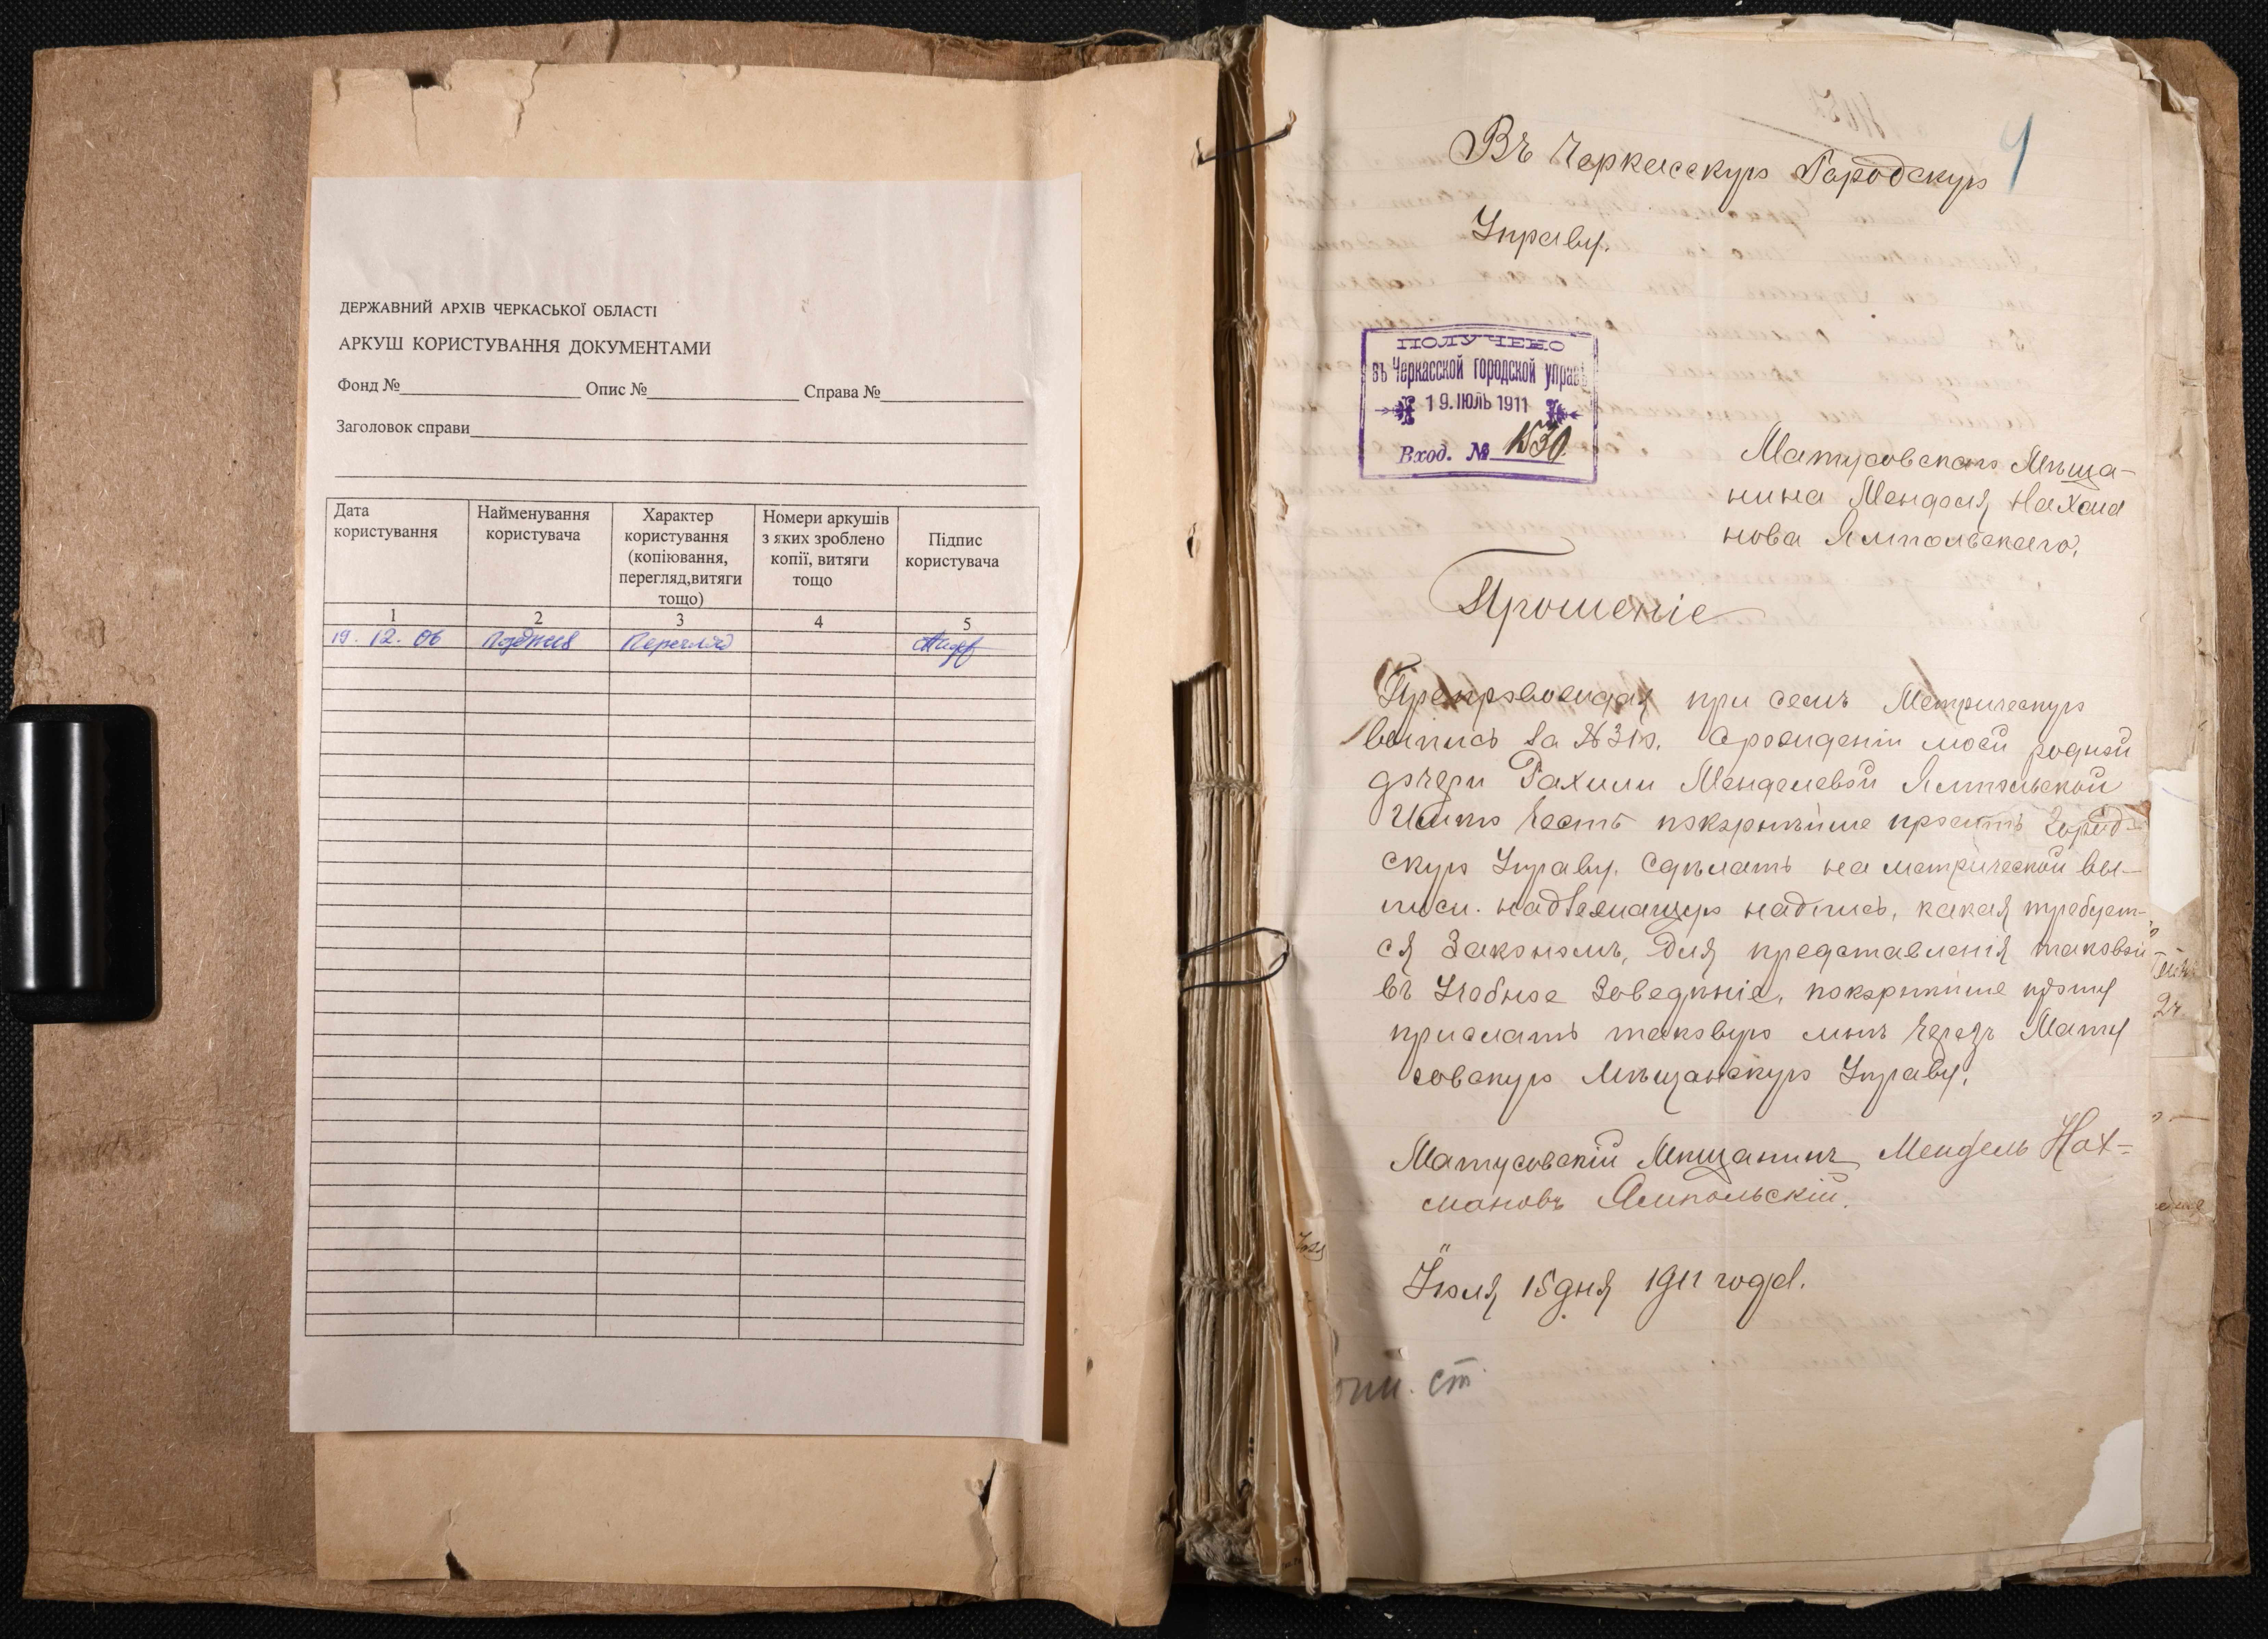 ДЕРЖАВНИЙ АРХІВ ЧЕРКАСЬКОЇ ОБЛАСТІ
АРКУШ КОРИСТУВАННЯ ДОКУМЕНТАМИ
Фонд № Опис № Справа №
Заголовок справи
Дата користування
Найменування користувача
Характер користування (копіювання, перегляд,витяги тощо)
Номери аркушів з яких зроблено копії, витяги тощо
Підпис користувача
1 2 3 4 5
19. 12. 06 Перегляд
Въ Черкасскую Городскую
Управу.
ПОЛУЧЕНО
въ Черкасской городской управѣ
19. ІЮЛЬ 1911
Вход. №
Матусовскаго Мѣща-
нина Менделя Нахма
нова Ямпольскаго,
Прошеніе
Препровождая при семъ Метрическую
выпись за № 310. о рожденіи моей родной
дочери Рахили Менделевой Ямпольской
Имѣю честь покорнѣйше просить Город-
скую Управу. Сдѣлать на метрической вы-
писи. надлежащую надпись, какая требует-
ся Закономъ, для представленія таковой
въ Учебное Заведѣніе, покорнѣйше прошу
прислать таковую мнѣ черезъ Мату
совскую Мѣщанскую Управу.
Матусовскій Мѣщанинъ Мендель Нах-
мановъ Ямпольскій.
Іюля 15 дня 1911 года.
ст